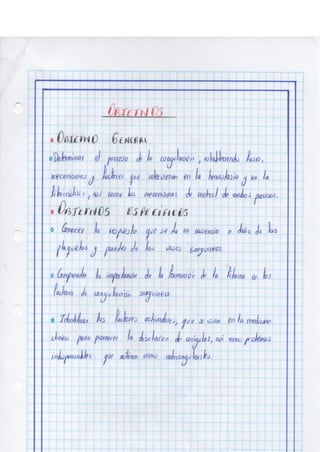 OBJETIVOS
OBJETIVO GENERAL
Determinar el proceso de la coagulación, estableciendo fases,
mecanismos y factores que intervienen en la hemostasia y en la
fibrinólisis, así como los mecanismos de control de ambos procesos.
OBJETIVOS ESPECIFICOS
Conocer la respuesta que se da en ausencia o daño de las
plaquetas y paredes de los vasos sanguineos.
Comprender la importancia de la formación de la fibrina en los
factores de coagulación sanguinea.
Identificar los factores activadores, que se usan en la medicina
clínica para promover la disolución de coágulos, así como proteínas
indispensables que actúan como anticoagulantes.